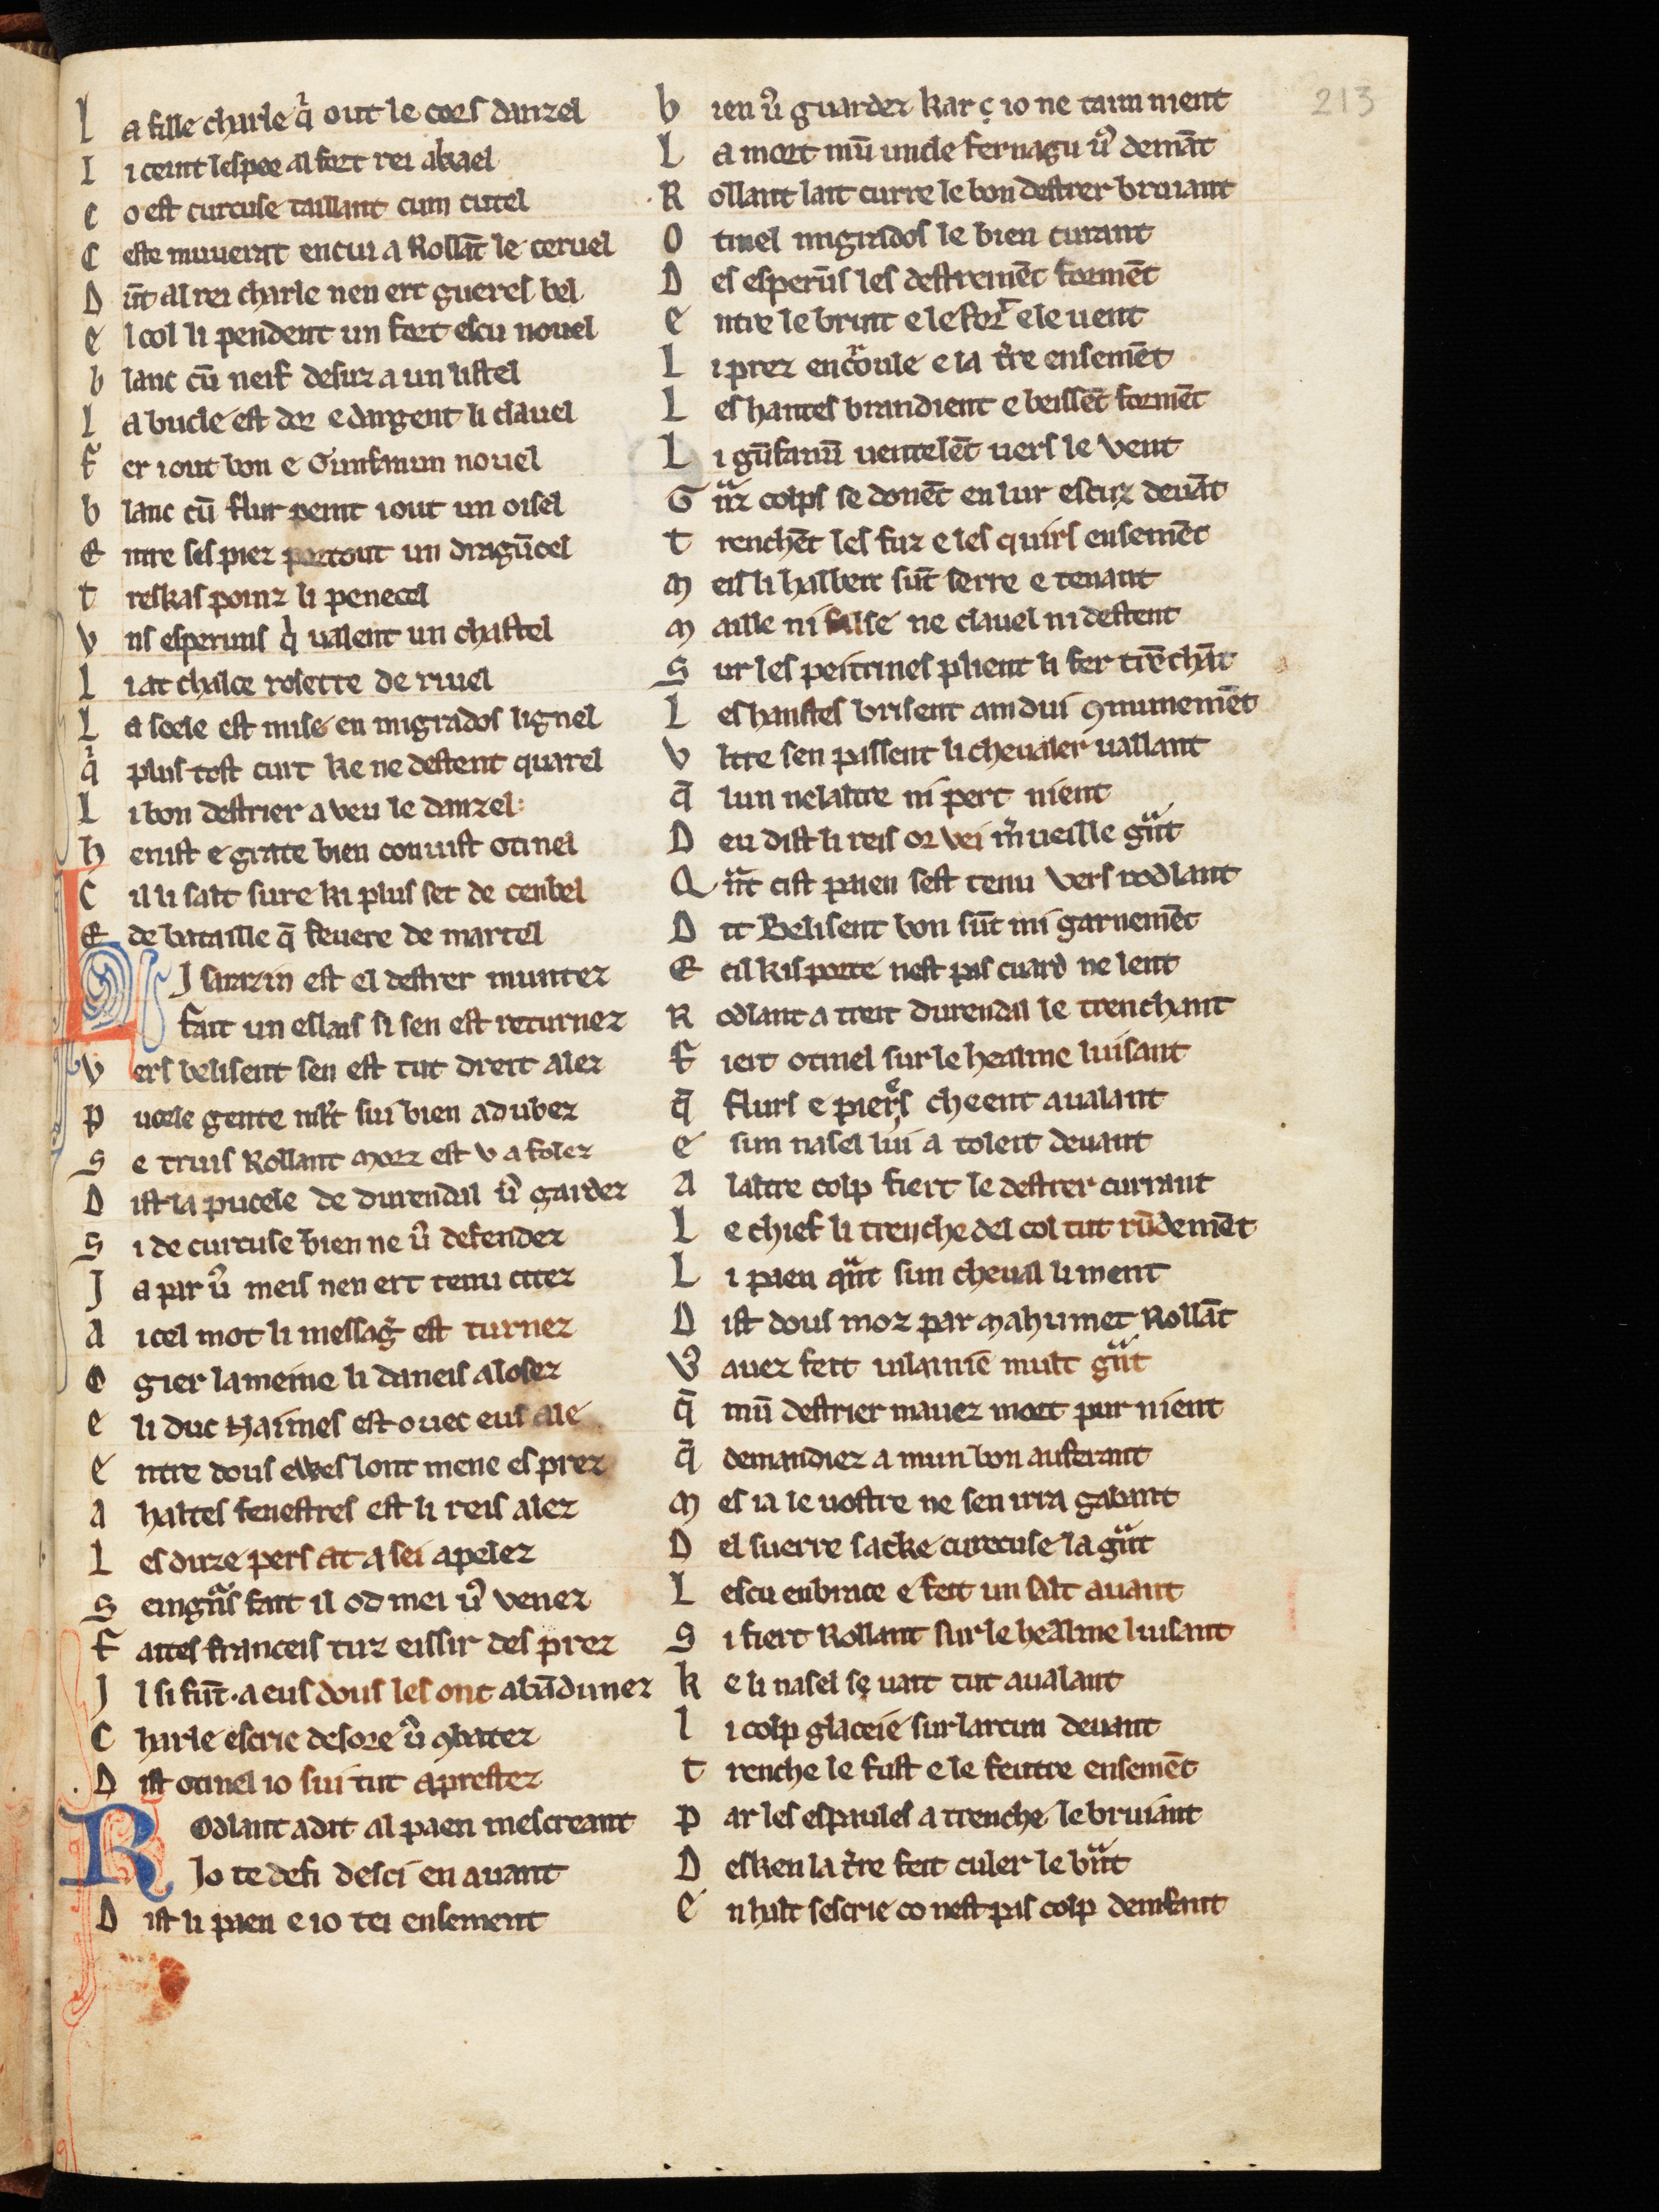 La fille charle q̓ out le cors danzel
Li ceint lespee al fort rei akael
Co est curcuse taillant cum cutel
Ceste muuerat encui a Rollāt le ceruel
Dūt al rei charle nen ert gueres bel
El col li pendent un fort escu nouel
blanc cū neif desuz a un listel
La bucle est dor e dargent li clauel
Fer i out bon e Gunfanun nouel
blanc cū flur peint i out un oisel
Entre ses piez portout un dragūcel
treskas poinz li penecel
Vns esperuns q̓ ualent un chastel
Li at chalce rosette de riuel
La seele est mise en migrados lignel
q̓ plus tost curt ke ne destent quarel
Li bon destrier a veu le danzel:
henist e grate bien conuist otinel
Cil li salt sure ki plus set de cenbel
E de bataille q̄ feuere de martel
LI sarazin est el destrer muntez
fait un eslais si sen est returnez
Vers belisent sen est tut dreit alez
pucele gente mlt̄ sui bien adubez
Se truis Rollant morz est v afolez
Dist la pucele de durendal ū garder
Si de curcuse bien ne ū defendez
Ja par ū meis nen ert tenu citez
a icel mot li messag̓ est turnez
Ogier la meine li daneis alosez
e li duc Haimes est ouec eus ale
entre dous ewes lont mene es prez
a haltes fenestres est li reis alez
Les duze pers at a sei apelez
Seingn̄s fait il od mei ū venez
Faites franceis tuz eissir des prez
Il si fūt·a eus dous les ont abādunez
Charle escrie desore ū ꝯbatez
.Dist otinel io sui tut aprestez
Rodlant a dit al paen mescreant
Jo te defi desci en auant
Dist li paen e io tei ensement
213
bien ū guarder kar ço ne taim nient
La mort mū uncle fernagu ū demāt
.Rollant lait curre le bon destrer bruiant
Otinel migrados le bien curant
Des esperūs les destreinēt formēt
entre le bruit e le for̄ e le uent
Li prez encr̓oule e la t̓re ensemēt
Les hantes brandient e beissēt formēt
Li gūfanū uentelēt uers le vent
Grāz colps se donēt en lur escuz deuāt
trenchēt les fuz e les quirs ensemēt
meis li halberc sūt serre e tenant
maille ni false ne clauel ni destent
Sur les peitrines plient li fer trēchāt
Les hanstes brisent amdui ꝯmunemēt
Vltre sen passent li cheualer uallant
q̄ lun ne laltre ni pert nient
Deu dist li reis or vei m̓ueille grāt
Qāt cist paen sest tenu vers rodlant
Dit Belisent bon sūt mi garnemēt
E cil kis porte nest pas cuard ne lent
Rodlant a treit durendal le trenchant
Fiert otinel sur le healme luisant
q̄ flurs e pieres cheent aualant
e sun nasel lui a toleit deuant
a laltre colp fiert le destrer currant
Le chief li trenche del col tut rūdemēt
Li paen qāt sun cheual li ment
Dist dous moz par mahumet Rollāt
V̓ auez feit uilainie mult grāt
q̄ mū destrier mauez mort pur nient
q̄ demandiez a mun bon auferant
mes ia le uostre ne sen irra gabant
Del fuerre sacke curecuse la grāt
Lescu enbrace e feit un salt auant
Si fiert Rollant sur le healme luisant
ke li nasel se uait tut aualant
li colp glaceie sur larcun deuant
trenche le fust e le feutre ensemēt
par les espaules a trenche le bruiant
Desken la t̓re feit culer le brāt
en halt sescrie co nest pas colp denfant